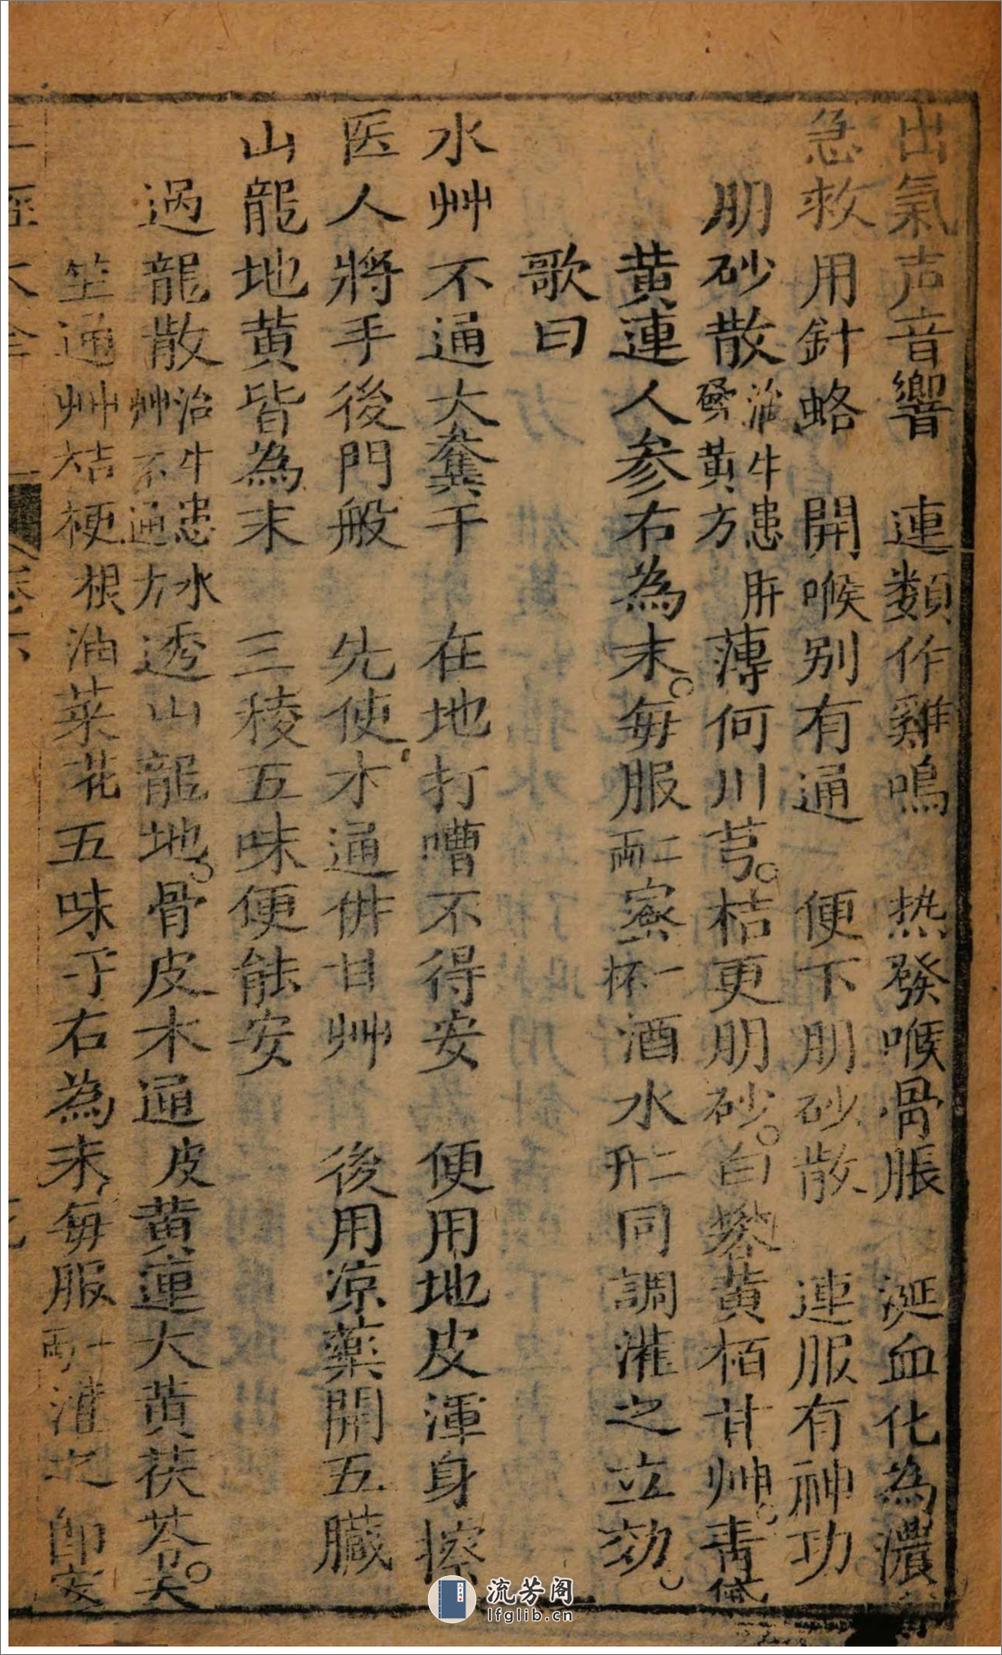 出氣声音響　連類作雞鳴　热發喉骨脹　涎血化為濃
急救用針蛒　開喉别有通　便下朋砂散　連服有神功
朋砂散治牛患肝黃方薄何川芎桔更朋砂白礬黃栢甘艸青
黃連人参右為末每服二兩蜜一杯酒水二升同調灌之立効
歌曰
水艸不通大糞干　在地打嘈不得安　便用地皮渾身擦
医人將手後門般　先使木通併甘艸　後用凉藥開五臓
山龍地黃皆為末　三稜五味便能安
過龍散治牛患水艸不通方透山龍地骨皮木通皮黃連大黃茯苓天
通艸桔梗根油菜花五味子右為末每服灌之即安
流芳阁
lfglib.cn